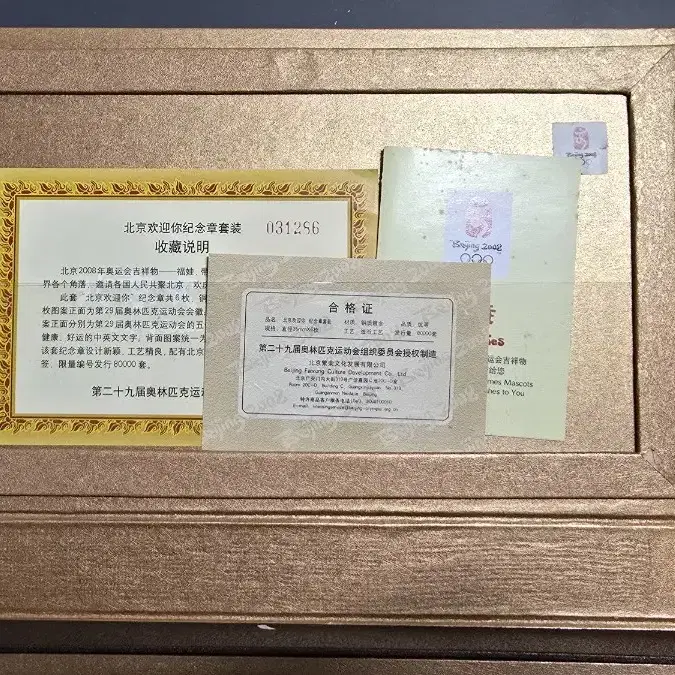 北京欢迎你纪念章套装 031286
收藏说明
北京2008年奥运会吉祥物——福娃，带
界各个角落，邀请各国人民共聚北京，欢庆
此套“北京欢迎你”纪念章共6枚，铜
枚图案正面为第29届奥林匹克运动会会徽
案正面分别为第29届奥林匹克运动会的五
健康、好运的中英文文字。背面图案统一为
该套纪念章设计新颖，工艺精良，配有北京
签，限量编号发行80000套。
第二十九届奥林匹克运动
合格证
品名：北京欢迎你 纪念章套装 材质：铜质镀金 品质：优等
规格：直径35mm×6枚 工艺： 发行量：80000套
第二十九届奥林匹克运动会组织委员会授权制造
文化发展有限公司
Culture Development Co., Ltd.
Beijing 2008
Beijing 2008
会吉祥物
mes Mascots
hes to You